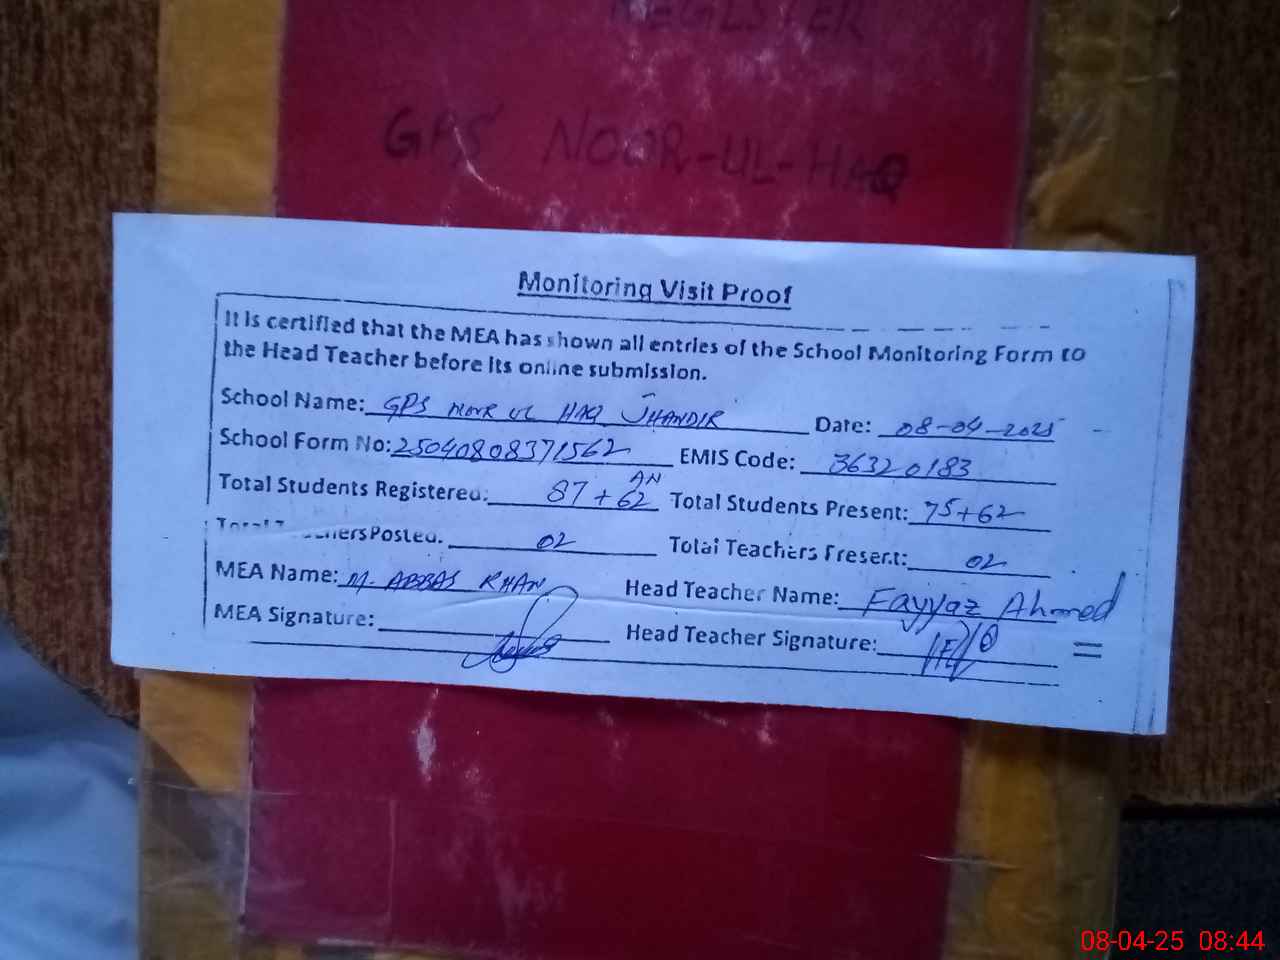 REGISTER
GPS NOOR-UL-HAQ
Monitoring Visit Proof
It is certified that the MEA has shown all entries of the School Monitoring Form to
the Head Teacher before its online submission.
School Name: GPS NOOR UL HAQ JHANDIR Date: 08-04-2025
School Form No: 25040808371562 EMIS Code: 36320183
AN
Total Students Registered: 87+62 Total Students Present: 75+62
Total Teachers Posted: 02 Total Teachers Present: 02
MEA Name: M. ABBAS KHAN Head Teacher Name: Fayyaz Ahmed
MEA Signature: Head Teacher Signature:
08-04-25 08:44